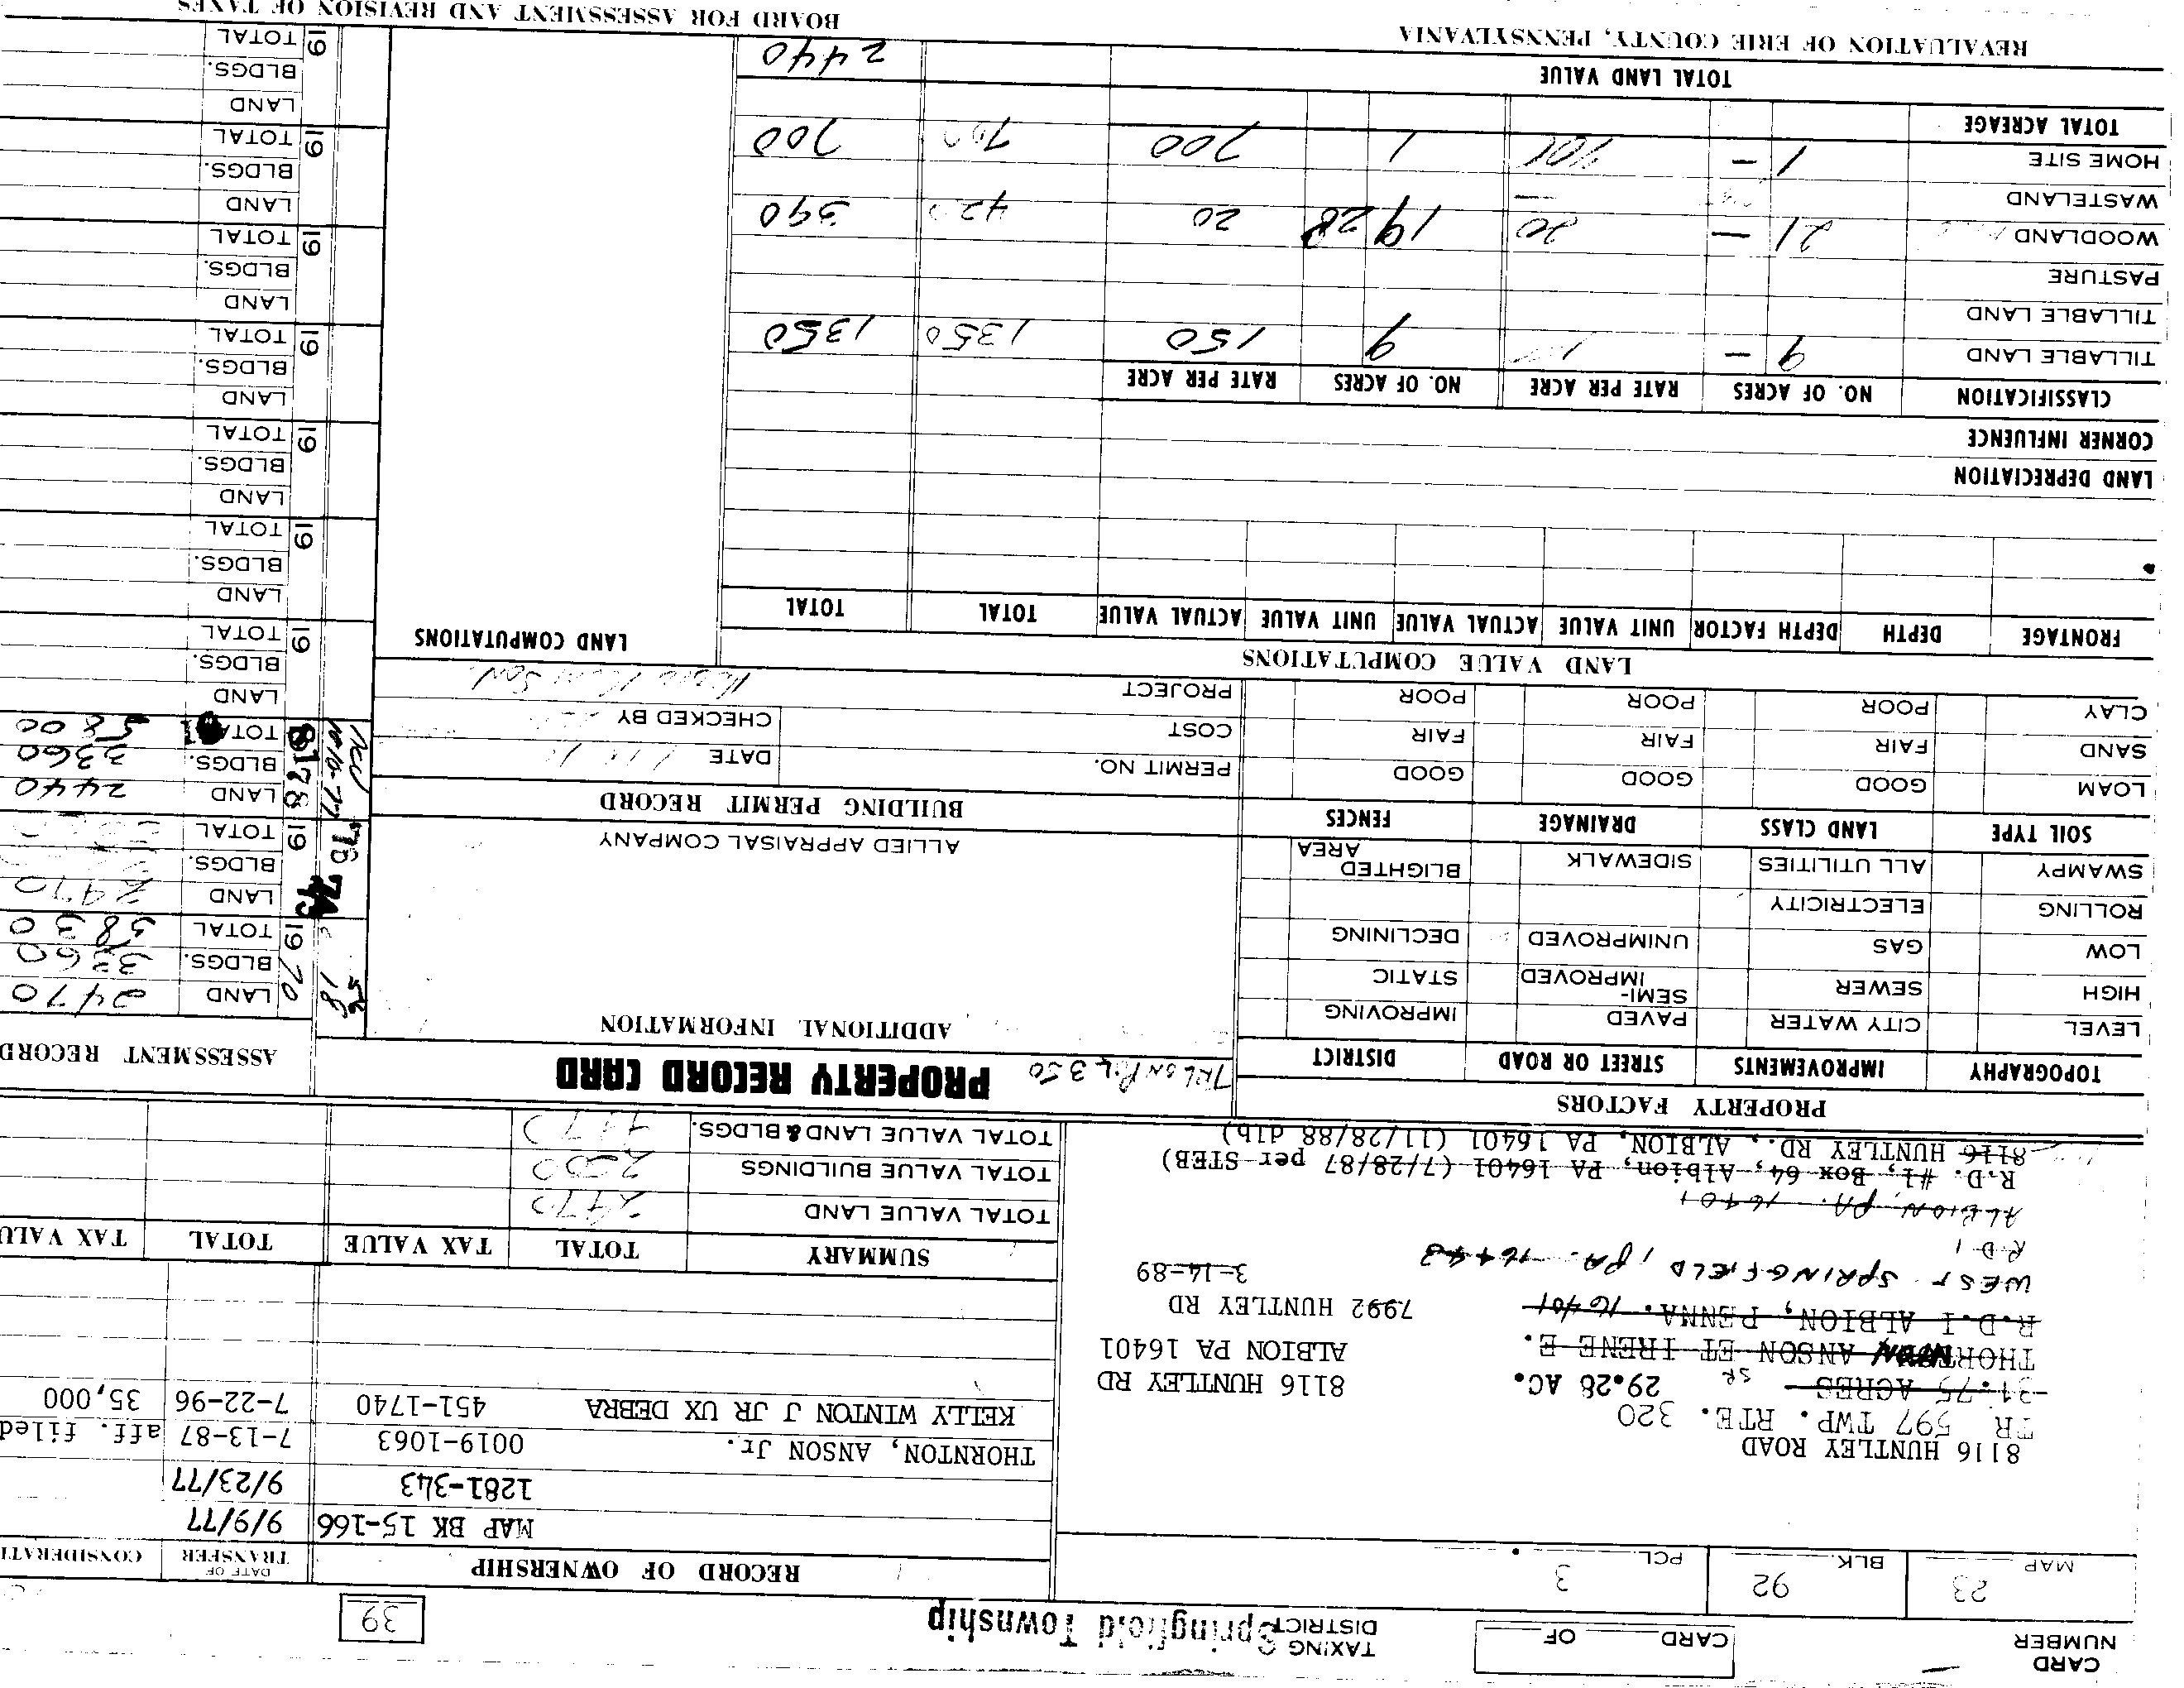 CARD NUMBER
CARD OF
TAXING DISTRICT Springfield Township
39
MAP 23 BLK. 92 PCL. 3
RECORD OF OWNERSHIP
DATE OF TRANSFER
CONSIDERATI
MAP BK 15-166 9/9/77
1281-343 9/23/77
THORNTON, ANSON Jr. 0019-1063 7-13-87 aff. filed
KELLY WINTON J JR UX DEBRA 451-1740 7-22-96 35,000
8116 HUNTLEY ROAD
TR 597 TWP. RTE. 320
31.75 ACRES 29.28 AC.
THORNTON ANSON ET IRENE E.
R.D.I ALBION, PENNA. 16401
WEST SPRINGFIELD, PA. 16443
R-D 1
ALBION, PA. 16401
R.D. #1, Box 64, Albion, PA 16401 (7/28/87 per STEB)
8116 HUNTLEY RD., ALBION, PA 16401 (11/28/88 dlb)
8116 HUNTLEY RD
ALBION PA 16401
7992 HUNTLEY RD
3-14-89
SUMMARY TOTAL TAX VALUE TOTAL TAX VALU
TOTAL VALUE LAND 2470
TOTAL VALUE BUILDINGS
TOTAL VALUE LAND & BLDGS.
PROPERTY FACTORS
TOPOGRAPHY IMPROVEMENTS STREET OR ROAD DISTRICT
LEVEL CITY WATER PAVED IMPROVING
HIGH SEWER SEMI-IMPROVED STATIC
LOW GAS UNIMPROVED DECLINING
ROLLING ELECTRICITY
SWAMPY ALL UTILITIES SIDEWALK BLIGHTED AREA
SOIL TYPE LAND CLASS DRAINAGE FENCES
LOAM GOOD GOOD GOOD
SAND FAIR FAIR FAIR
CLAY POOR POOR POOR
350 PROPERTY RECORD CARD
ADDITIONAL INFORMATION
ALLIED APPRAISAL COMPANY
BUILDING PERMIT RECORD
PERMIT NO. DATE
COST CHECKED BY
PROJECT
ASSESSMENT RECORD
1970 LAND 2470
BLDGS. 3360
TOTAL 5830
19 LAND 2470
BLDGS.
TOTAL
10-10-77
78 LAND 2440
BLDGS. 3360
TOTAL 5800
19 LAND
BLDGS.
TOTAL
19 LAND
BLDGS.
TOTAL
19 LAND
BLDGS.
TOTAL
19 LAND
BLDGS.
TOTAL
19 LAND
BLDGS.
TOTAL
19 LAND
BLDGS.
TOTAL
19 LAND
BLDGS.
TOTAL
LAND VALUE COMPUTATIONS
LAND COMPUTATIONS
FRONTAGE DEPTH DEPTH FACTOR UNIT VALUE ACTUAL VALUE UNIT VALUE ACTUAL VALUE TOTAL TOTAL
LAND DEPRECIATION
CORNER INFLUENCE
CLASSIFICATION NO. OF ACRES RATE PER ACRE NO. OF ACRES RATE PER ACRE
TILLABLE LAND 9 - 9 150 1350 1350
TILLABLE LAND
PASTURE
WOODLAND 21 - 20 19 28 20 420 390
WASTELAND
HOME SITE 1 - 700 1 700 700 700
TOTAL ACREAGE
TOTAL LAND VALUE 2440
REVALUATION OF ERIE COUNTY, PENNSYLVANIA
BOARD FOR ASSESSMENT AND REVISION OF TAXES